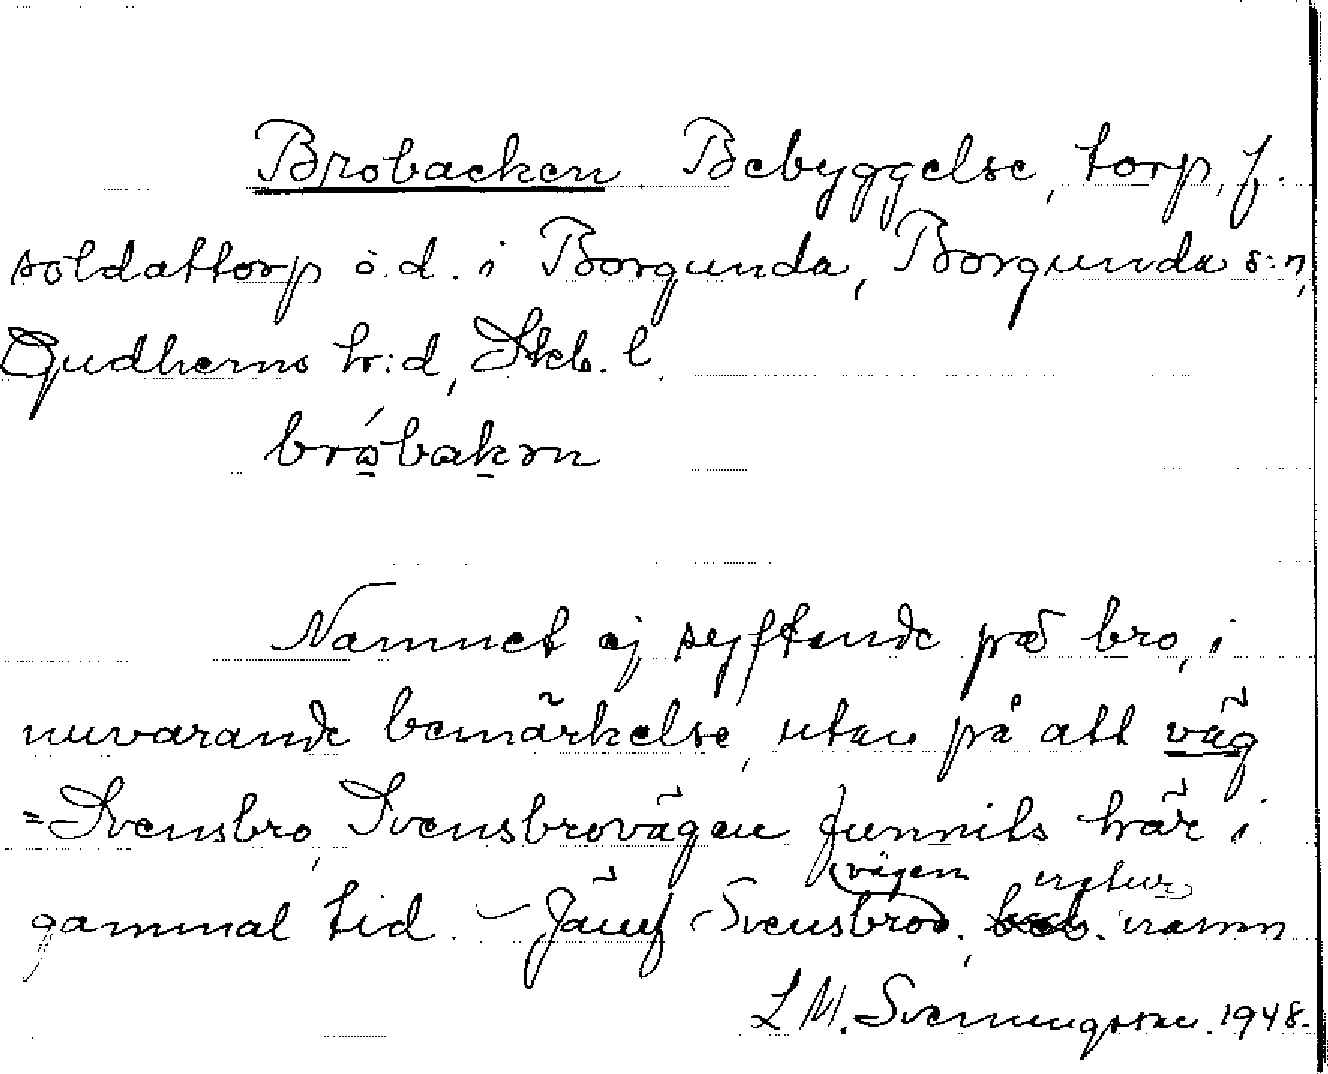 Brobacken Bebyggelse, torp, f.
soldattorp ö.d. i Borgunda, Borgunda s:n,
Gudhems h:d, Skb. l.
bróbakɘn
Namnet ej syftande på bro, i
nuvarande bemärkelse, utan på att väg
=Svensbro, Svensbrovägen funnits här i
gammal tid. – Jämf Svensbrovägen, natur namn
L M. Svenungsson. 1948.